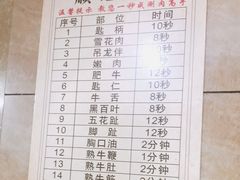 温馨提示 教您一秒成涮肉高手
序号 部位 时间
1 匙柄 10秒
2 雪花肉 8秒
3 吊龙伴 10秒
4 嫩肉 10秒
5 肥牛 12秒
6 匙仁 10秒
7 牛舌 8秒
8 黑百叶 8秒
9 五花趾 12秒
10 脚趾 12秒
11 胸口油 2分钟
12 熟牛鞭 1分钟
13 熟牛肚 2分钟
14 熟牛筋 2分钟